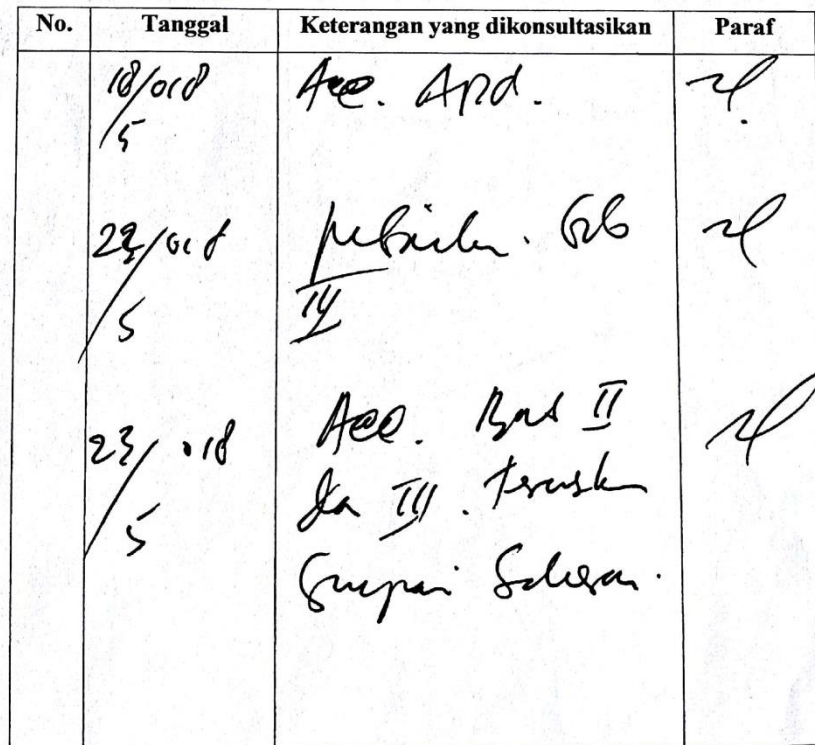 No. Tanggal Keterangan yang dikonsultasikan Paraf
18/018 Acc. Apd.
/5
22/018 perbaikan. Bab
/5 IV
23/018 Acc. Bab II
/5 dan III. Teruskan
Sampai Selesai.